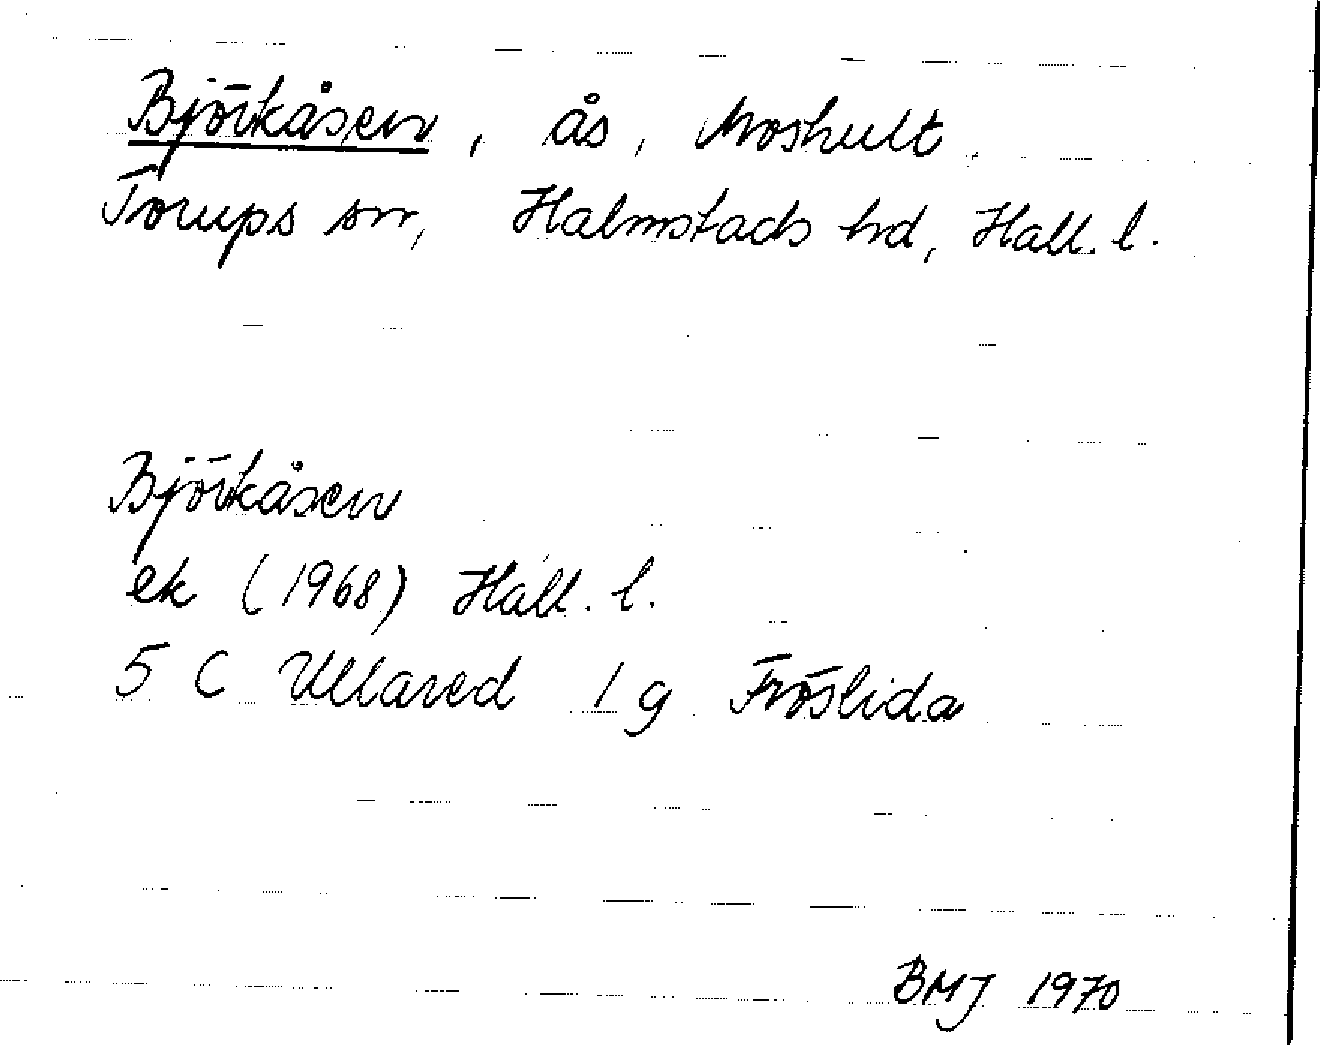 Björkåsen, ås, Moshult,
Torups sn, Halmstads hd, Hall. l.
Björkåsen
ek (1968) Hall. l.
5 C Ullared 1 g Fröslida
BMJ 1970